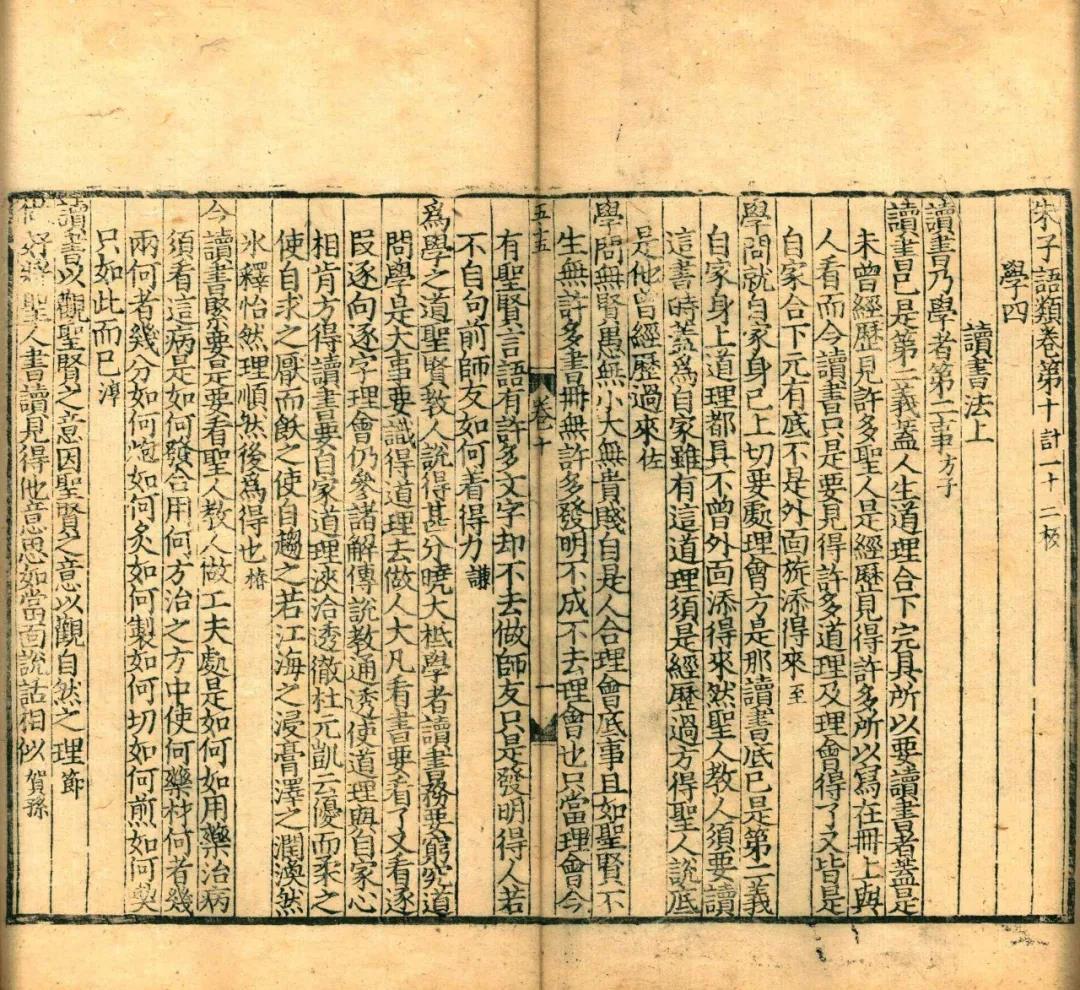 朱子語類卷第十 計一十二板
學四
讀書法上
讀書乃學者第二事 方子
讀書已是第二義蓋人生道理合下完具所以要讀書者蓋是
未曾經歷見許多聖人是經歷見得許多所以寫在冊上與
人看而今讀書只是要見得許多道理及理會得了又皆是
自家合下元有底不是外面旋添得來 至
學問就自家身己上切要處理會方是那讀書底已是第二義
自家身上道理都具不曾外面添得來然聖人教人須要讀
這書時蓋為自家雖有這道理須是經歷過方得聖人說底
是他曾經歷過來 佐
學問無賢愚無小大無貴賤自是人合理會底事且如聖賢不
生無許多書冊無許多發明不成不去理會也只當理會今
五十五
卷十
一
有聖賢言語有許多文字却不去做師友只是發明得人若
不自向前師友如何着得力 謙
為學之道聖賢教人說得甚分曉大柢學者讀書務要窮究道
問學是大事要識得道理去做人大凡看書要看了又看逐
段逐句逐字理會仍參諸解傳說教通透使道理與自家心
相肯方得讀書要自家道理浹洽透徹杜元凱云優而柔之
使自求之厭而飫之使自趨之若江海之浸膏澤之潤渙然
氷釋怡然理順然後為得也 椿
今讀書緊要是要看聖人教人做工夫處是如何如用藥治病
須看這病是如何發合用何方治之方中使何藥材何者幾
兩何者幾分如何炮如何炙如何製如何切如何煎如何喫
只如此而已 淳
讀書以觀聖賢之意因聖賢之意以觀自然之理 節
好將聖人書讀見得他意思如當面說話相似 賀孫